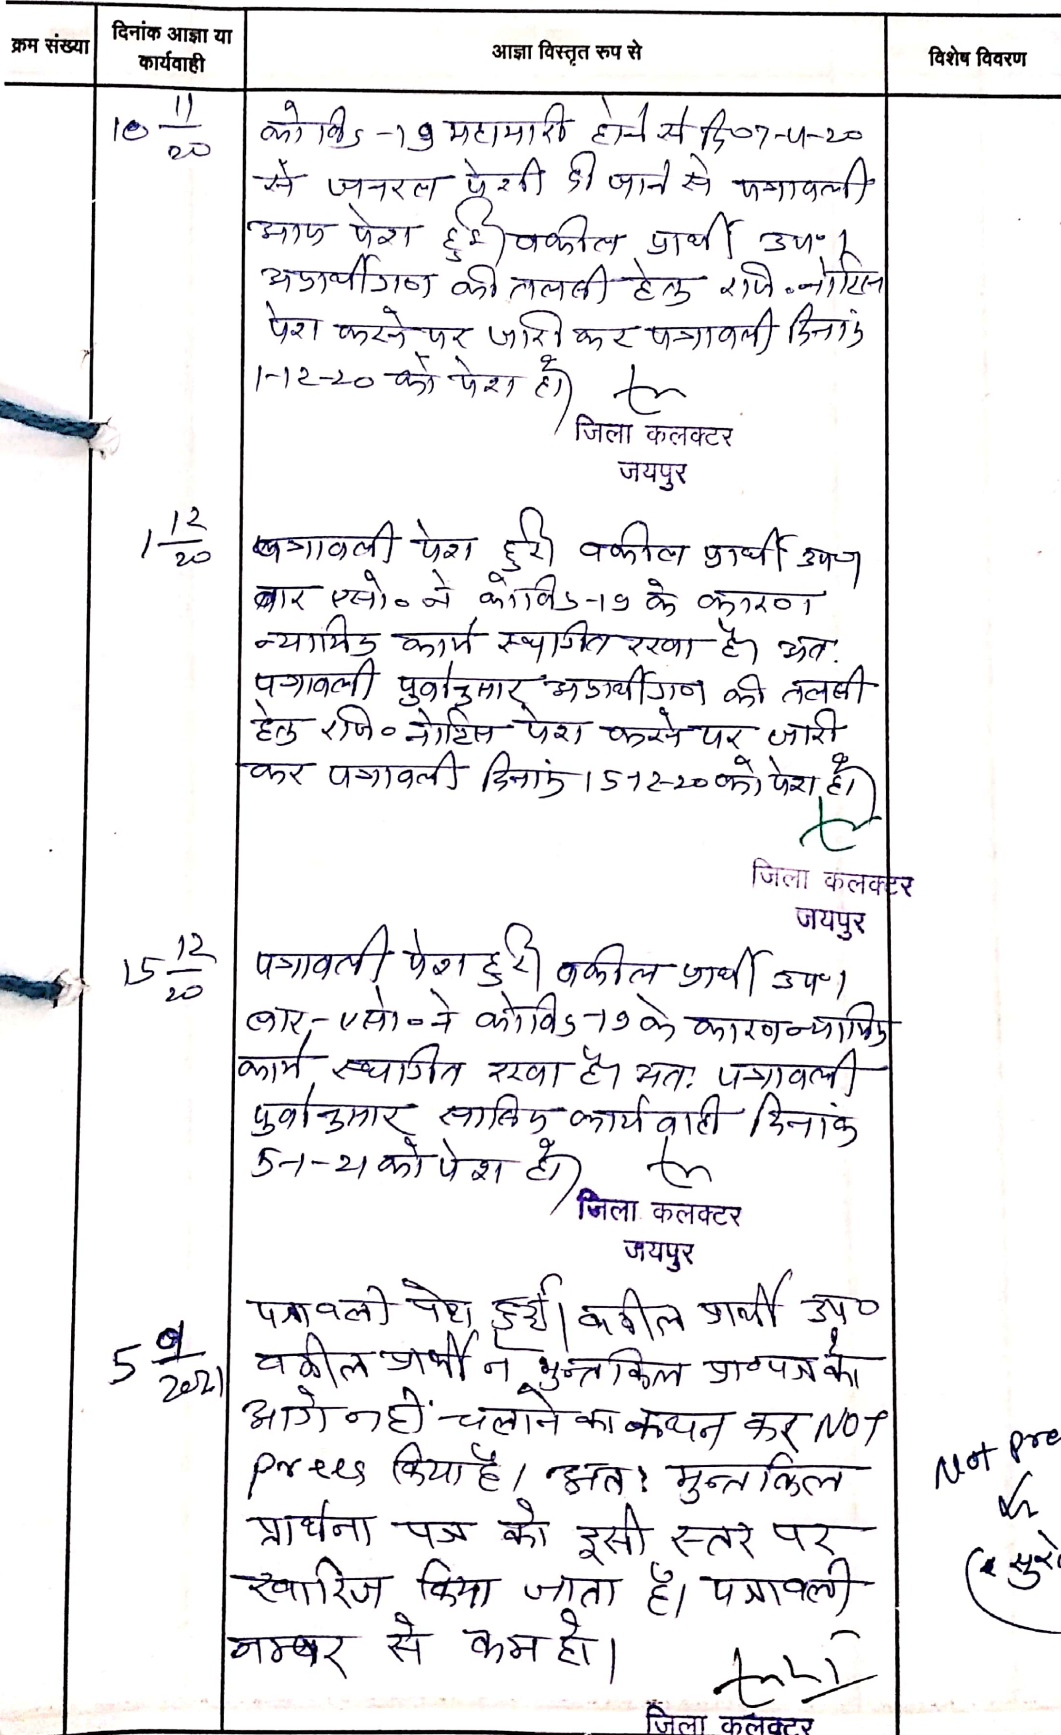 क्रम संख्या
दिनांक आज्ञा या
कार्यवाही
आज्ञा विस्तृत रुप से
विशेष विवरण
10 11/20
कोविड-19 महामारी होने से दि07-4-20
से जनरल पेशी दी जाने से पत्रावली
आज पेश हुई। वकील प्रार्थी उप०।
अप्रार्थीगण की तलबी हेतु रजि०नोटिस
पेश करने पर जारी कर पत्रावली दिनांक
1-12-20 को पेश हो।
जिला कलक्टर
जयपुर
1 12/20
पत्रावली पेश हुई। वकील प्रार्थी उप०।
बार एसो० ने कोविड-19 के कारण
न्यायिक कार्य स्थगित रखा है। अत:
पत्रावली पुर्वानुसार अप्रार्थीगण की तलबी
हेतु रजि० नोटिस पेश करने पर जारी
कर पत्रावली दिनांक 15-12-20 को पेश हो।
जिला कलक्टर
जयपुर
15 12/20
पत्रावली पेश हुई। वकील प्रार्थी उप०।
बार-एसो०ने कोविड-19 के कारण न्यायिक
कार्य स्थगित रखा है। अत: पत्रावली
पुर्वानुसार साबिक कार्यवाही दिनांक
5-1-21 को पेश हो।
जिला कलक्टर
जयपुर
5 /2021
पत्रावली पेश हुई। वकील प्रार्थी उप०
वकील प्रार्थी ने मुन्तकिल प्रा०पत्र को
आगे नहीं चलाने का कथन कर NOT
press किया है। अत: मुन्तकिल
प्रार्थना पत्र को इसी स्तर पर
खारिज किया जाता है। पत्रावली
नम्बर से कम हो।
Not pre
जिला कलक्टर